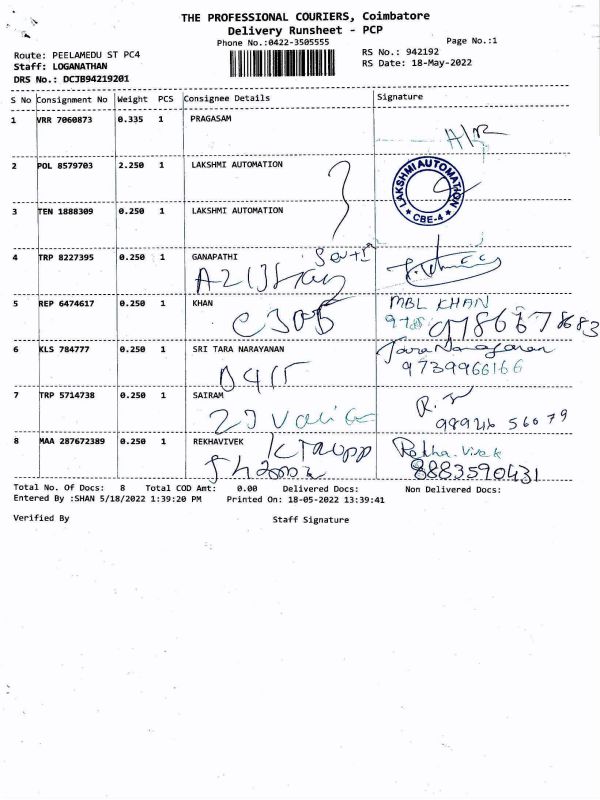 THE PROFESSIONAL COURIERS, Coimbatore
Delivery Runsheet - PCP
Phone No.:0422-3505555
Page No.:1
Route: PEELAMEDU ST PC4
RS No.: 942192
Staff: LOGANATHAN
RS Date: 18-May-2022
DRS No.: DCJB94219201
S No Consignment No Weight PCS Consignee Details Signature
1 VRR 7060873 0.335 1 PRAGASAM
2 POL 8579703 2.250 1 LAKSHMI AUTOMATION
LAKSHMI AUTOMATION
★ CBE-4 ★
3 TEN 1888309 0.250 1 LAKSHMI AUTOMATION
4 TRP 8227395 0.250 1 GANAPATHI
5 REP 6474617 0.250 1 KHAN MBL KHAN
C305
6 KLS 784777 0.250 1 SRI TARA NARAYANAN Tara Narayanan
D415 9739966166
7 TRP 5714738 0.250 1 SAIRAM
8 MAA 287672389 0.250 1 REKHAVIVEK Rekha.Vivek
8883590431
Total No. Of Docs: 8 Total COD Amt: 0.00 Delivered Docs: Non Delivered Docs:
Entered By :SHAN 5/18/2022 1:39:20 PM Printed On: 18-05-2022 13:39:41
Verified By Staff Signature